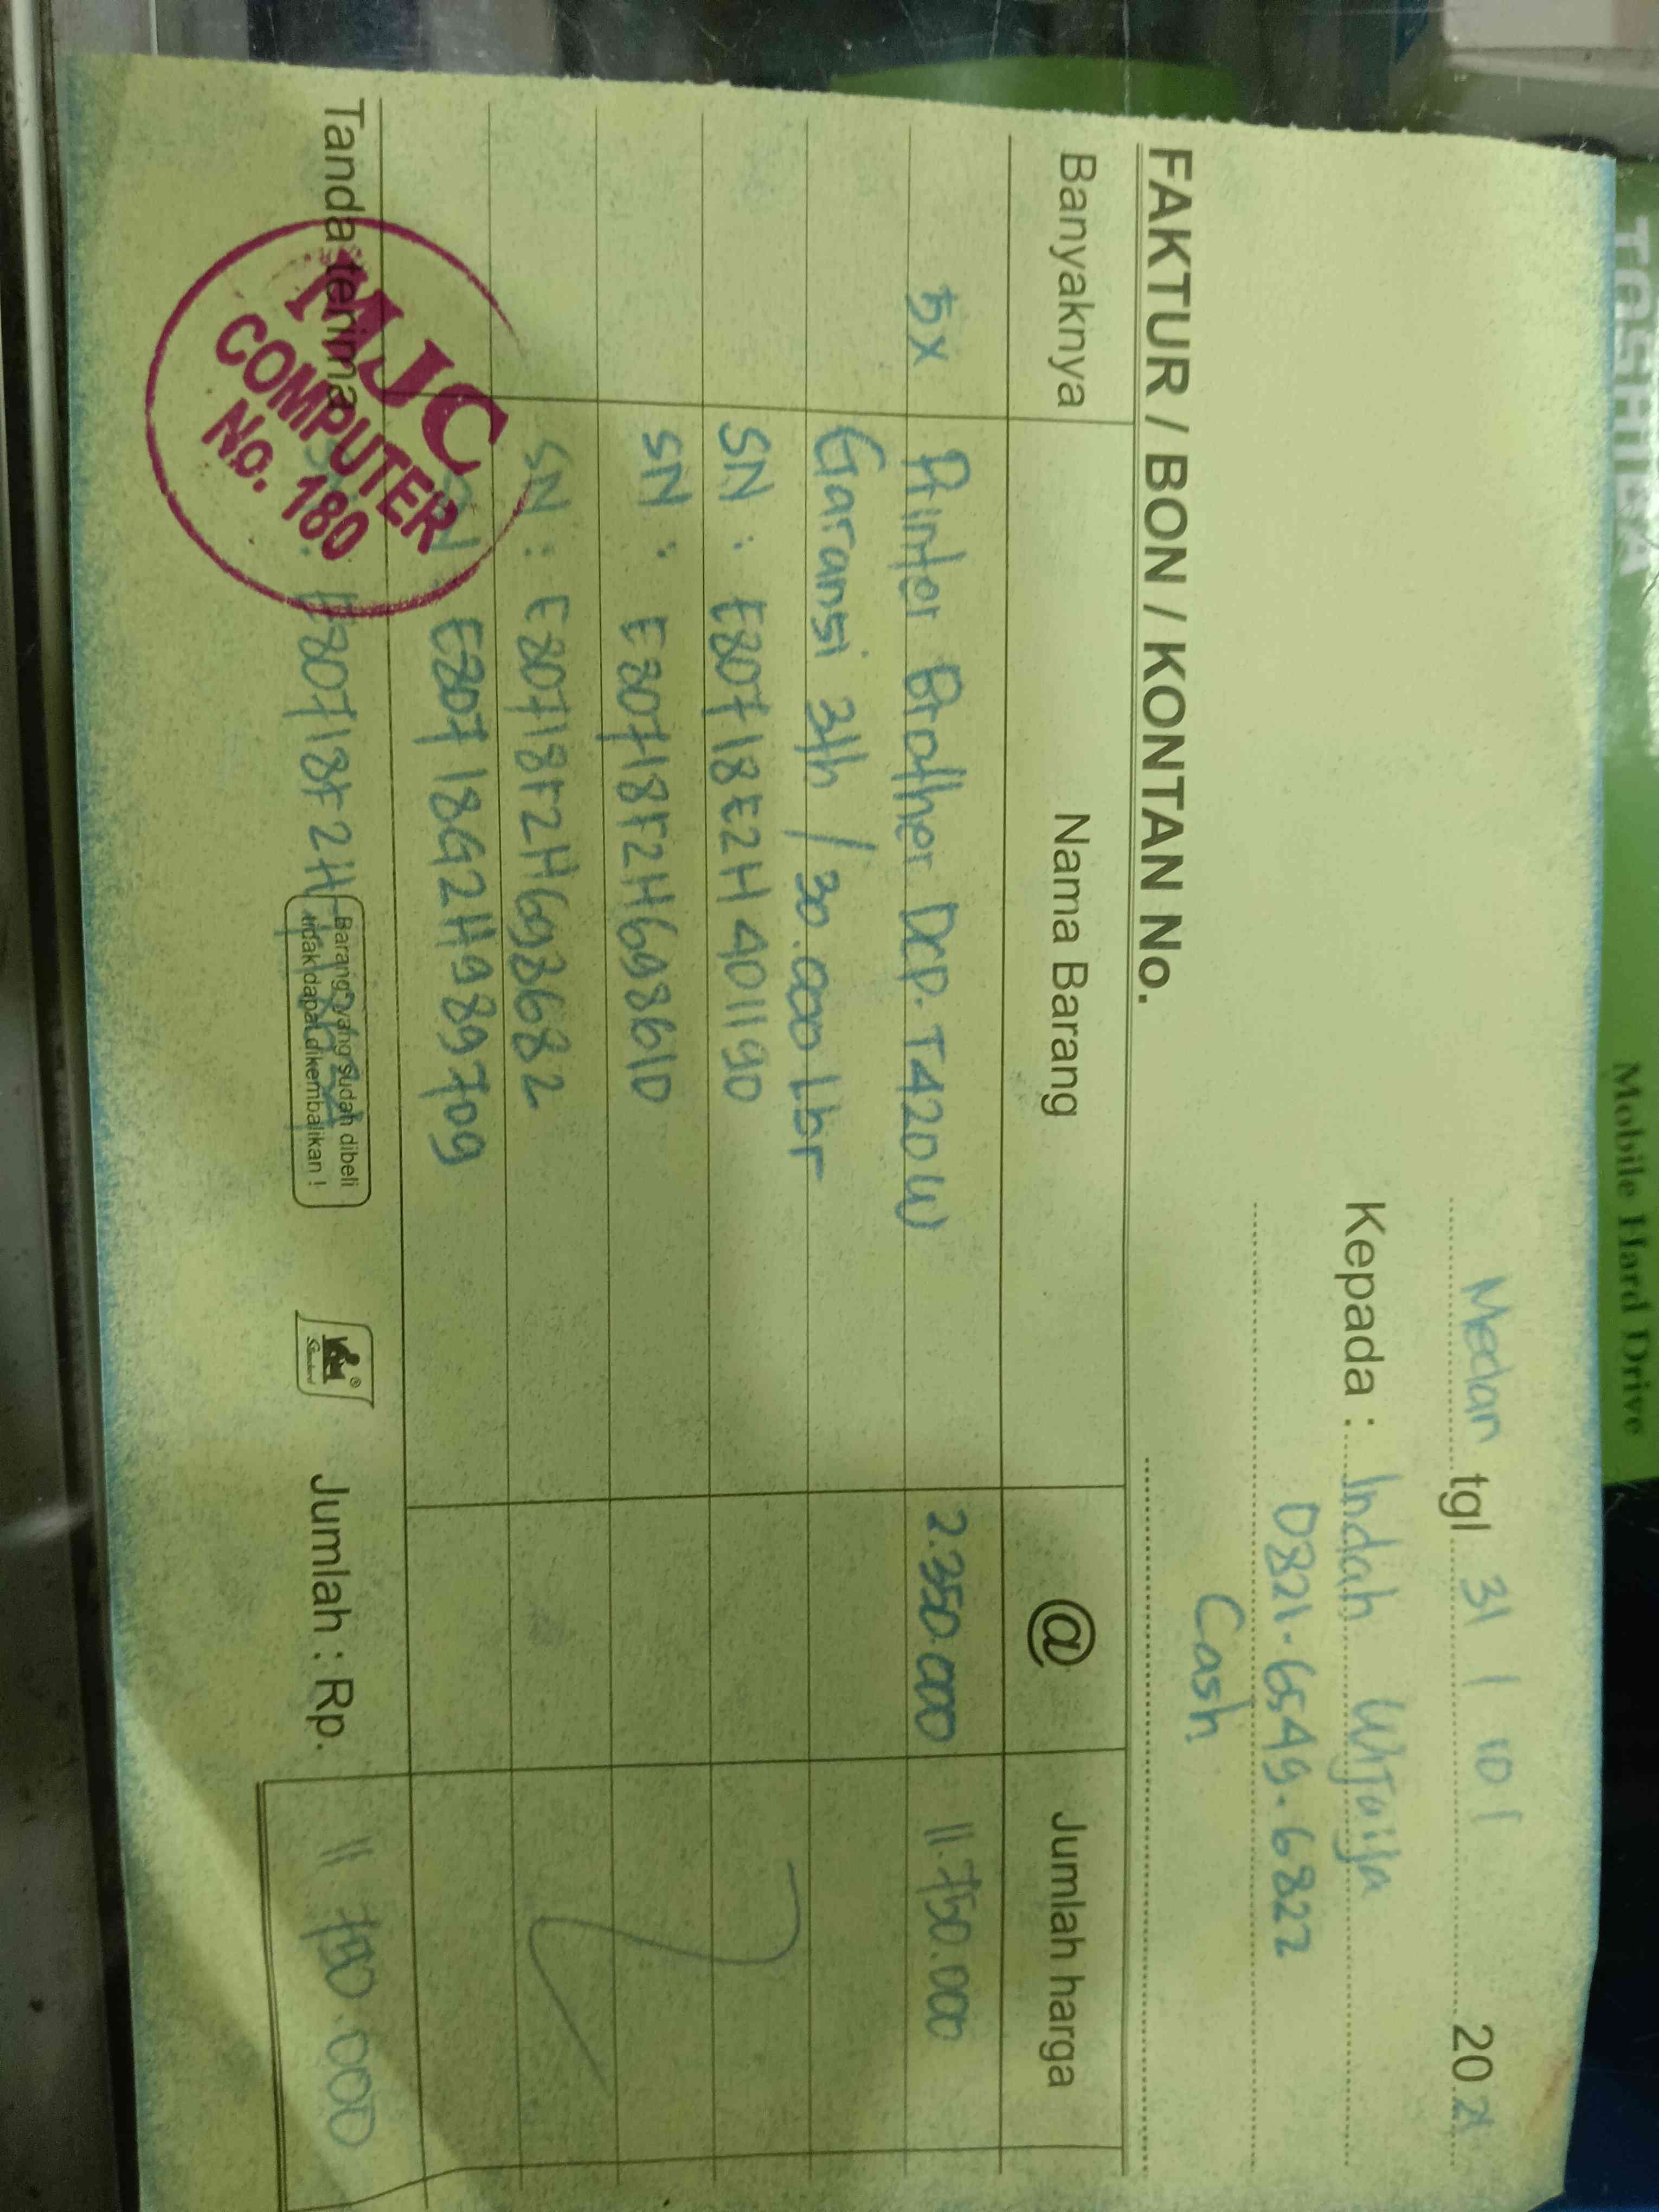 TOSHIBA
Mobile Hard Drive
Medan tgl 31 / 10 / 202
Kepada : Indah Wijaya
0821-6549-6822
Cash
FAKTUR / BON / KONTAN No.
Banyaknya Nama Barang @ Jumlah harga
5x Printer Brother DCP-T420W 2.350.000 11.750.000
Garansi 3th / 30.000 lbr
SN : E80718E2H401190
SN : E80718F2H698610
SN : E80718F2H693682
SN : E80718G2H989709
E80718F2H
Tanda terima
MJC
COMPUTER
No. 180
Barang yang sudah dibeli
tidak dapat dikembalikan !
Standard
Jumlah : Rp. 11.750.000